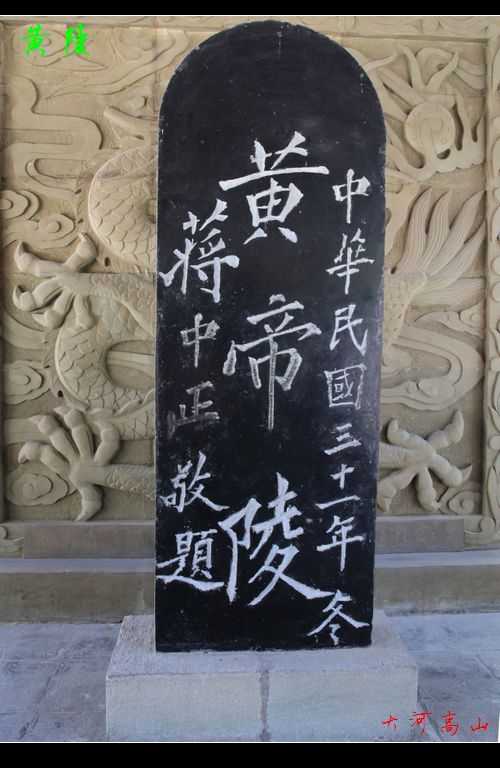 黄陵
中華民國三十一年冬
黄帝陵
蔣中正敬題
大河高山